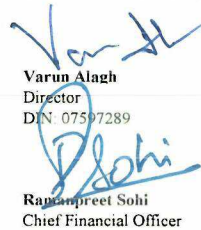 Varun Alagh
Director
DIN: 07597289
R Sohi
Ramanpreet Sohi
Chief Financial Officer